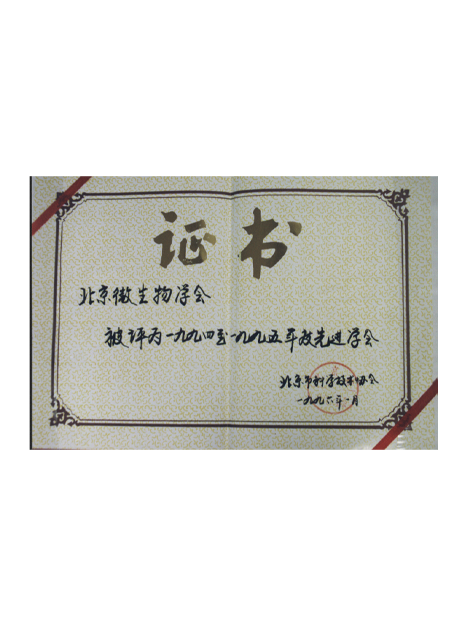 证书
北京微生物学会
被评为一九九四至一九九五年度先进学会
北京市科学技术协会
一九九六年一月